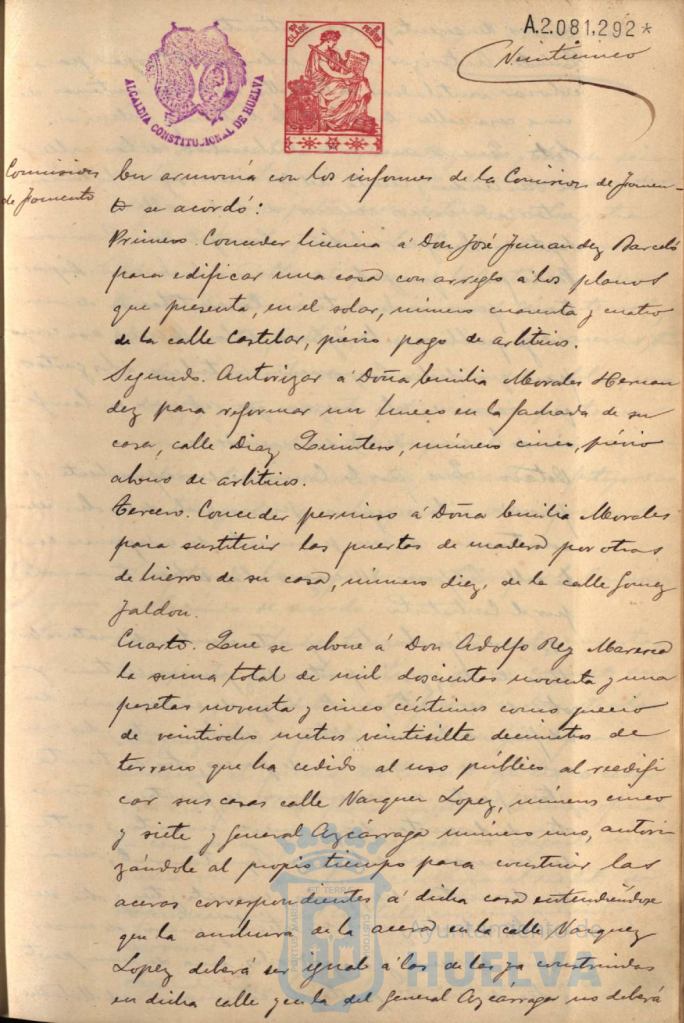 A.2.081.292*
Veinticinco
ALCALDIA CONSTITUCIONAL DE HUELVA
CLASE
Comision
de Fomento
En armonía con los informes de la Comision de Fomen-
to se acordó:
Primero. Conceder licencia á Don José Fernandez Barceló
para edificar una casa con arreglo á los planos
que presenta, en el solar, número cuarenta y cuatro
de la calle Castelar, prévio pago de arbitrios.
Segundo. Autorizar á Doña Emilia Morales Hernan
dez para reformar un hueco en la fachada de su
casa, calle Diaz Quintero, número cinco, prévio
abono de arbitrios.
Tercero. Conceder permiso á Doña Emilia Morales
para sustituir las puertas de madera por otras
de hierro de su casa, número diez, de la calle Gomez
Jaldon.
Cuarto. Que se abone á Don Adolfo Rey
la suma total de mil doscientas noventa y una
pesetas noventa y cinco céntimos como precio
de veintiocho metros veintisiete decimetros de
terreno que ha cedido al uso público al reedifi
car sus casas calle Vazquez Lopez, números cinco
y siete y General Azcárraga número uno, autori
zándole al propio tiempo para construir las
aceras correspondientes á dicha casa entendiéndose
que la anchura de la acera en la calle Vazquez
Lopez deberá ser igual á las de las ya construidas
en dicha calle y en la del General Azcárraga no deberá
Ayuntamiento de
HUELVA